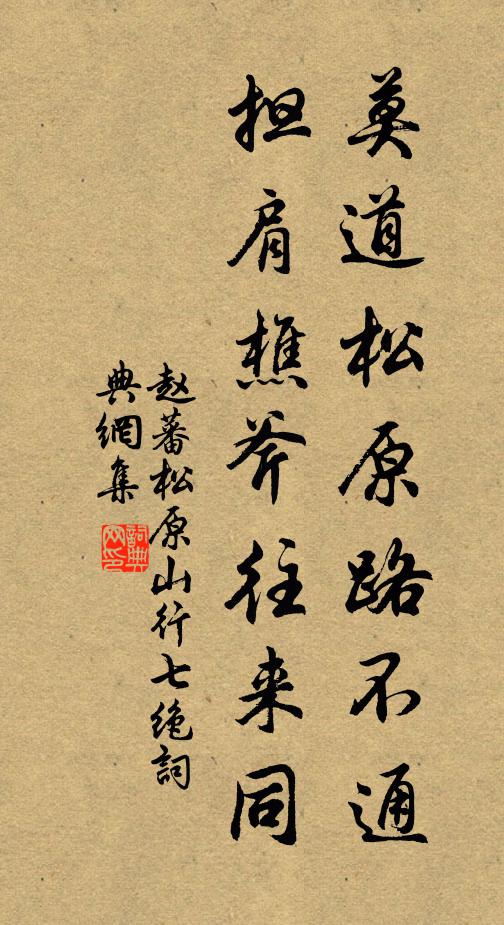 莫道松原路不通
担肩樵斧往来同
赵蕃松原山行七绝詞
典網集
詞典网印